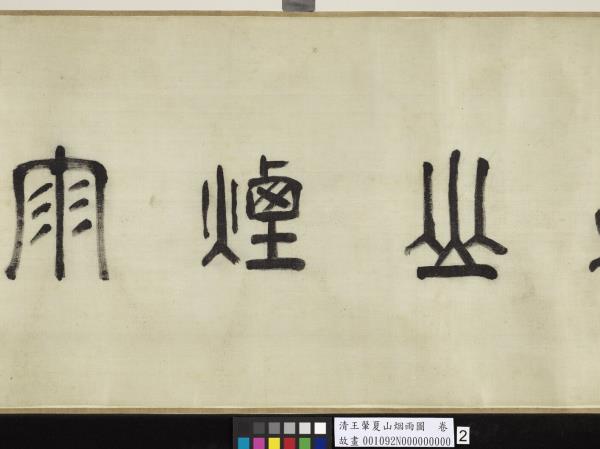 山煙雨
清王肇夏山烟雨圖 卷
故畫001092N000000000
2